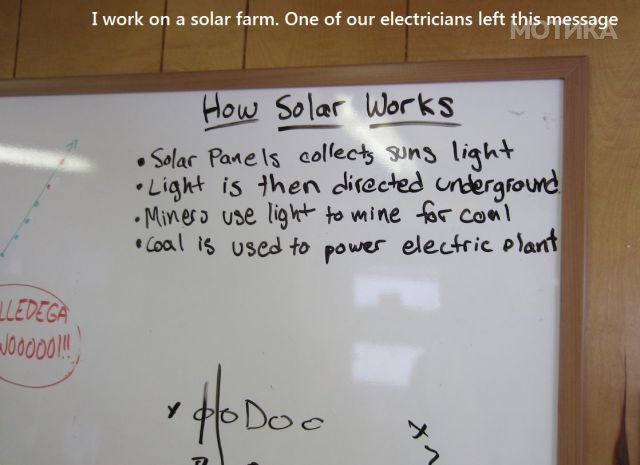 I work on a solar farm. One of our electricians left this message
МОТИКА
How Solar Works
• Solar Panels collects suns light
• Light is then directed underground
• Miners use light to mine for coal
• Coal is used to power electric plant
LLEDEGA
WOOOOO!!!